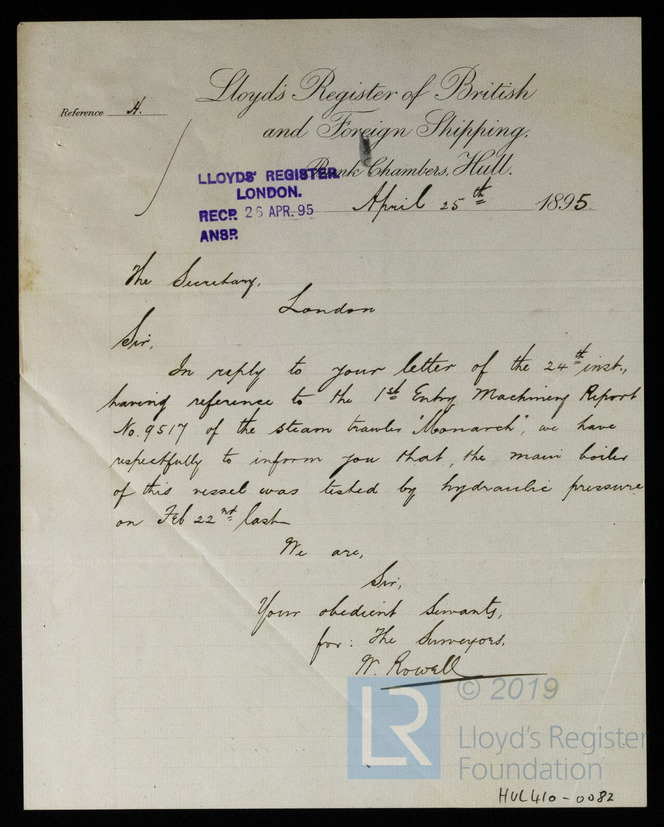 Lloyd's Register of British
and Foreign Shipping.
Reference H.
Bank Chambers, Hull.
LLOYDS' REGISTER,
LONDON.
RECD. 26 APR. 95
ANSD.
April 25th 1895.
The Secretary,
London
Sir,
In reply to your letter of the 24th inst.,
having reference to the 1st Entry Machinery Report
No. 9517 of the steam trawler "Monarch", we have
respectfully to inform you that, the main boiler
of this vessel was tested by hydraulic pressure
on Feb 22nd last
We are,
Sir,
Your obedient Servants,
for: The Surveyors.
W. Rowell
LR
© 2019
Lloyd's Register
Foundation
HUL410-0082